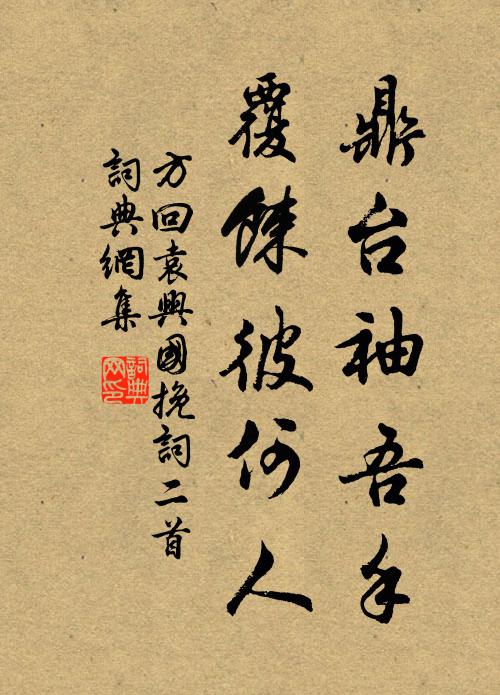 鼎台袖吾手
覆餗彼何人
方回袁興國挽詞二首
詞典網集
詞典
网印